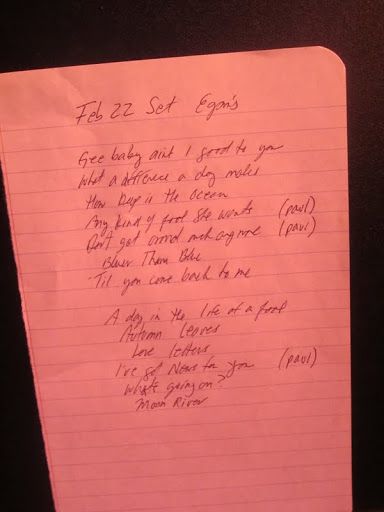 Feb 22 Set Egan's
Gee baby aint I good to you
What a difference a day makes
How Deep is the Ocean
Any Kind of fool She wants (paul)
Don't get around much anymore (paul)
Bluer Than Blue
'Til you come back to me
A day in the life of a fool
Autumn Leaves
Love letters
I've got News for you (paul)
What's going on?
Moon River